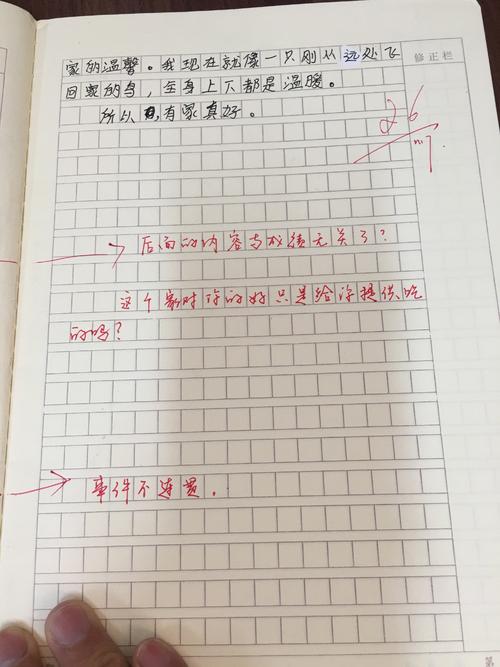 家的温馨。我现在就像一只刚从远处飞
修正栏
回家的鸟，全身上下都是温暖。
所以，有家真好。
26
后面的内容与成绩无关了？
这个家对你的好只是给你提供吃
的吗？
事件不连贯。
第